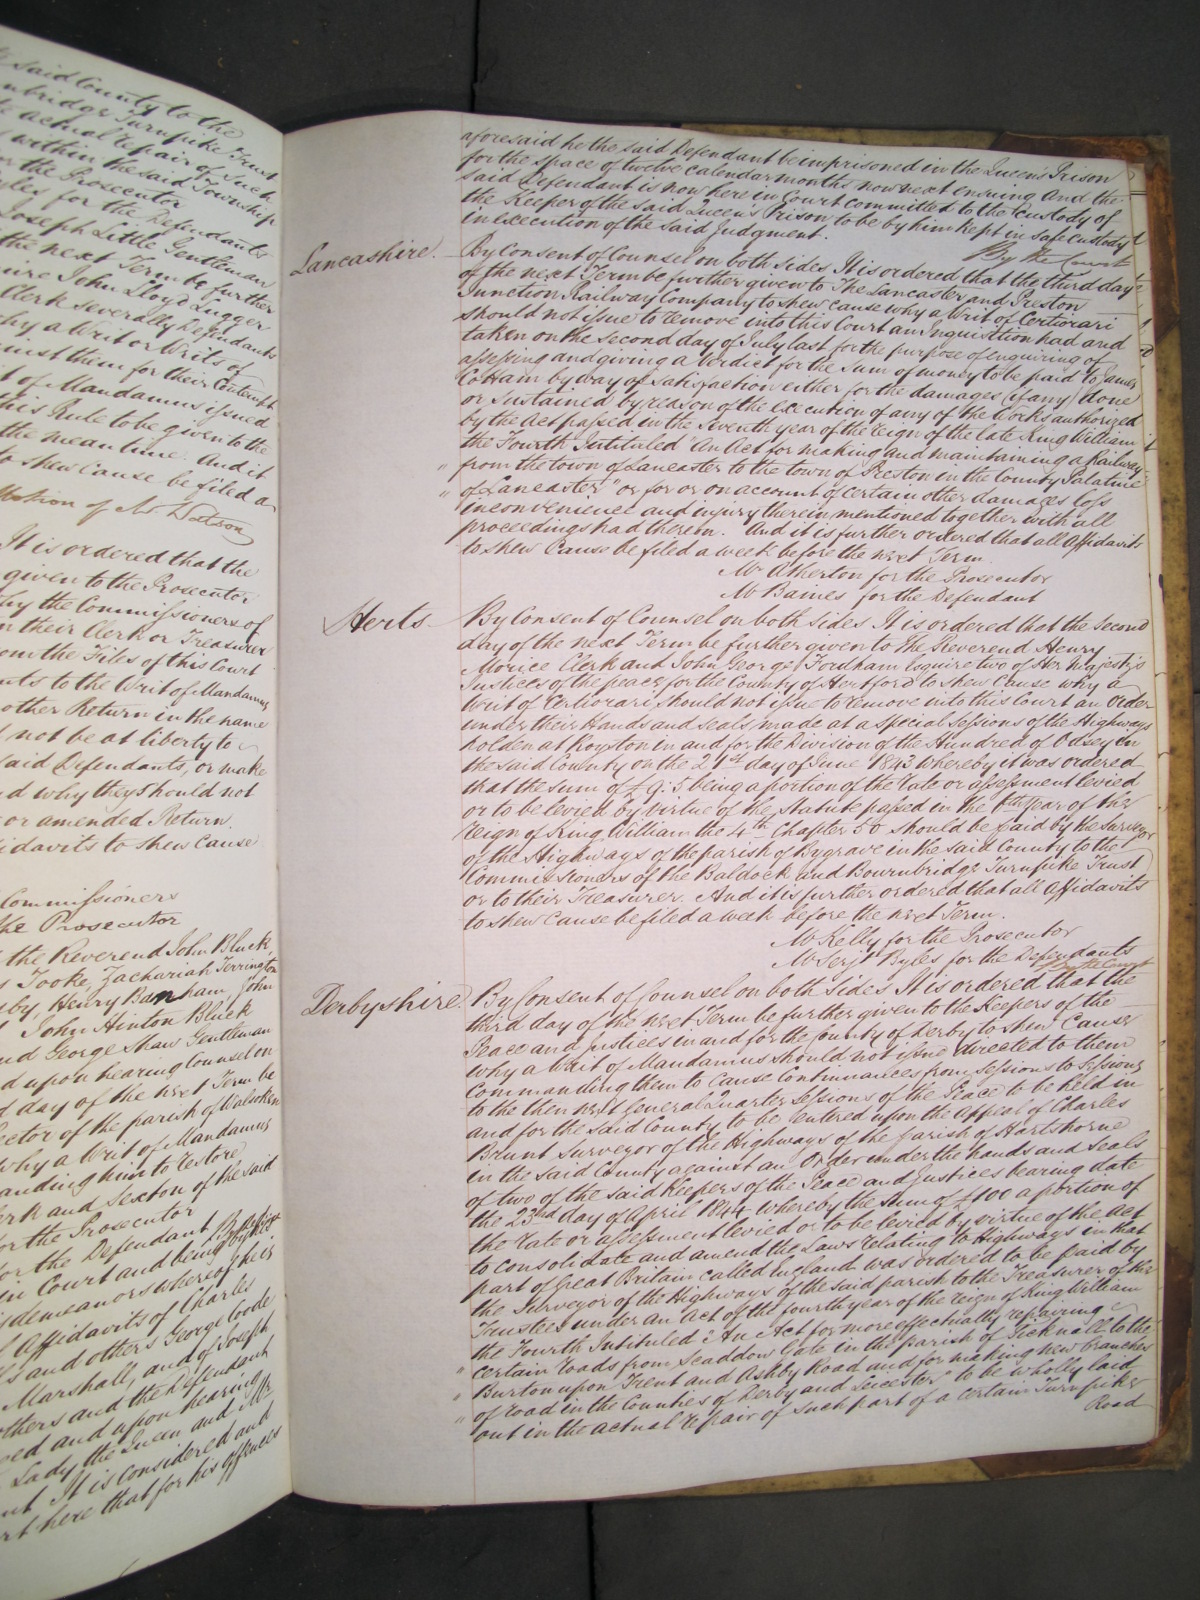 said County to the
Turnpike Trust
actual repair of such
within the said Township
the Prosecutor
for the Defendants
Joseph Little Gentleman
the next Term be further
John Lloyd Lugger
Clerk severally Defendants
why a Writ or Writs of
against them for their Contempt
of Mandamus issued
this Rule to be given to the
the mean time. And it
to shew Cause be filed a
Motion of Mr Watson
It is ordered that the
given to the Prosecutor
why the Commissioners of
their Clerk or Treasurer
from the Files of this Court
to the Writ of Mandamus
other Return in the name
not be at liberty to
said Defendants, or make
and why they should not
or amended Return.
Affidavits to shew Cause
Commissioners
the Prosecutor
the Reverend John Bluck,
Tooke, Zachariah Terrington
Henry Banham, John
John Hinton Bluck
and George Shaw Gentleman
and upon hearing Counsel on
day of the next Term be
Rector of the parish of Walsoken
why a Writ of Mandamus
commanding him to restore
Clerk and Sexton of the said
for the Prosecutor
for the Defendant
in Court and being
misdemeanors whereof he is
Affidavits of Charles
and others George Goode
Marshall, and of Joseph
others and the Defendant
and upon hearing
Lady the Queen and Mr
It is considered and
here that for his offences
aforesaid he the said Defendant be imprisoned in the Queen's Prison
for the space of twelve calendar months now next ensuing And the
said Defendant is now here in Court committed to the Custody of
the Keeper of the said Queen's Prison to be by him kept in safe custody
in execution of the said Judgment.
By the Court
Lancashire. By Consent of Counsel on both sides It is ordered that the third day
of the next Term be further given to The Lancaster and Preston
Junction Railway Company to shew cause why a Writ of Certiorari
should not issue to remove into this Court an Inquisition had and
taken on the second day of July last for the purpose of enquiring of
assessing and giving a Verdict for the Sum of money to be paid to James
Cottam by way of satisfaction either for the damages (if any) done
or sustained by reason of the execution of any of the Works authorized
by the Act passed in the seventh year of the reign of the late King William
the Fourth Intituled "An Act for making and maintaining a Railway
" from the town of Lancaster to the town of Preston in the County Palatine
" of Lancaster" or for or on account of certain other damages loss
inconvenience and injury therein mentioned together with all
proceedings had thereon. And it is further ordered that all Affidavits
to shew Cause be filed a week before the next Term.
Mr Atherton for the Prosecutor
Mr Baines for the Defendant
Herts By Consent of Counsel on both sides It is ordered that the Second
day of the next Term be further given to The Reverend Henry
Morice Clerk and John George Fordham Esquire two of Her Majesty's
Justices of the peace for the County of Hertford to shew Cause why a
Writ of Certiorari should not issue to remove into this Court an Order
under their Hands and seals made at a special Sessions of the Highways
holden at Royston in and for the Division of the Hundred of Odsey in
the said County on the 21st day of June 1843 whereby it was ordered
that the sum of £9:5. being a portion of the rate or assessment levied
or to be levied by virtue of the Statute passed in the year of the
reign of King William the 4th Chapter 50 should be paid by the Surveyor
of the Highways of the parish of Bygrave in the said County to the
Commissioners of the Baldock and Bournbridge Turnpike Trust
or to their Treasurer. And it is further ordered that all Affidavits
to shew Cause be filed a week before the next Term.
Mr Kelly for the Prosecutor
Mr Serjt Byles for the Defendants
By the Court
Derbyshire. By Consent of Counsel on both sides It is ordered that the
third day of the next Term be further given to the Keepers of the
Peace and Justices in and for the County of Derby to shew Cause
why a Writ of Mandamus should not issue directed to them
Commanding them to Cause Continuances from Sessions to Sessions
to the then next General Quarter Sessions of the Peace to be held in
and for the said County to be entered upon the Appeal of Charles
Brunt Surveyor of the Highways of the parish of Hartshorne
in the said County against an Order under the hands and seals
of two of the said Keepers of the Peace and Justices bearing date
the 23rd day of April 1844 whereby the sum of £100 a portion of
the rate or assessment levied or to be levied by virtue of the Act
to consolidate and amend the Laws relating to Highways in that
part of Great Britain called England was ordered to be paid by
the Surveyor of the Highways of the said parish to the Treasurer of the
Trustees under an Act of the fourth year of the reign of King William
the Fourth Intituled "An Act for more effectually repairing
" certain roads from Scaddow Gate in the parish of Ticknall to the
" Burton upon Trent and Ashby Road and for making new branches
" of road in the Counties of Derby and Leicester" to be wholly laid
out in the actual repair of such part of a certain Turnpike
Road